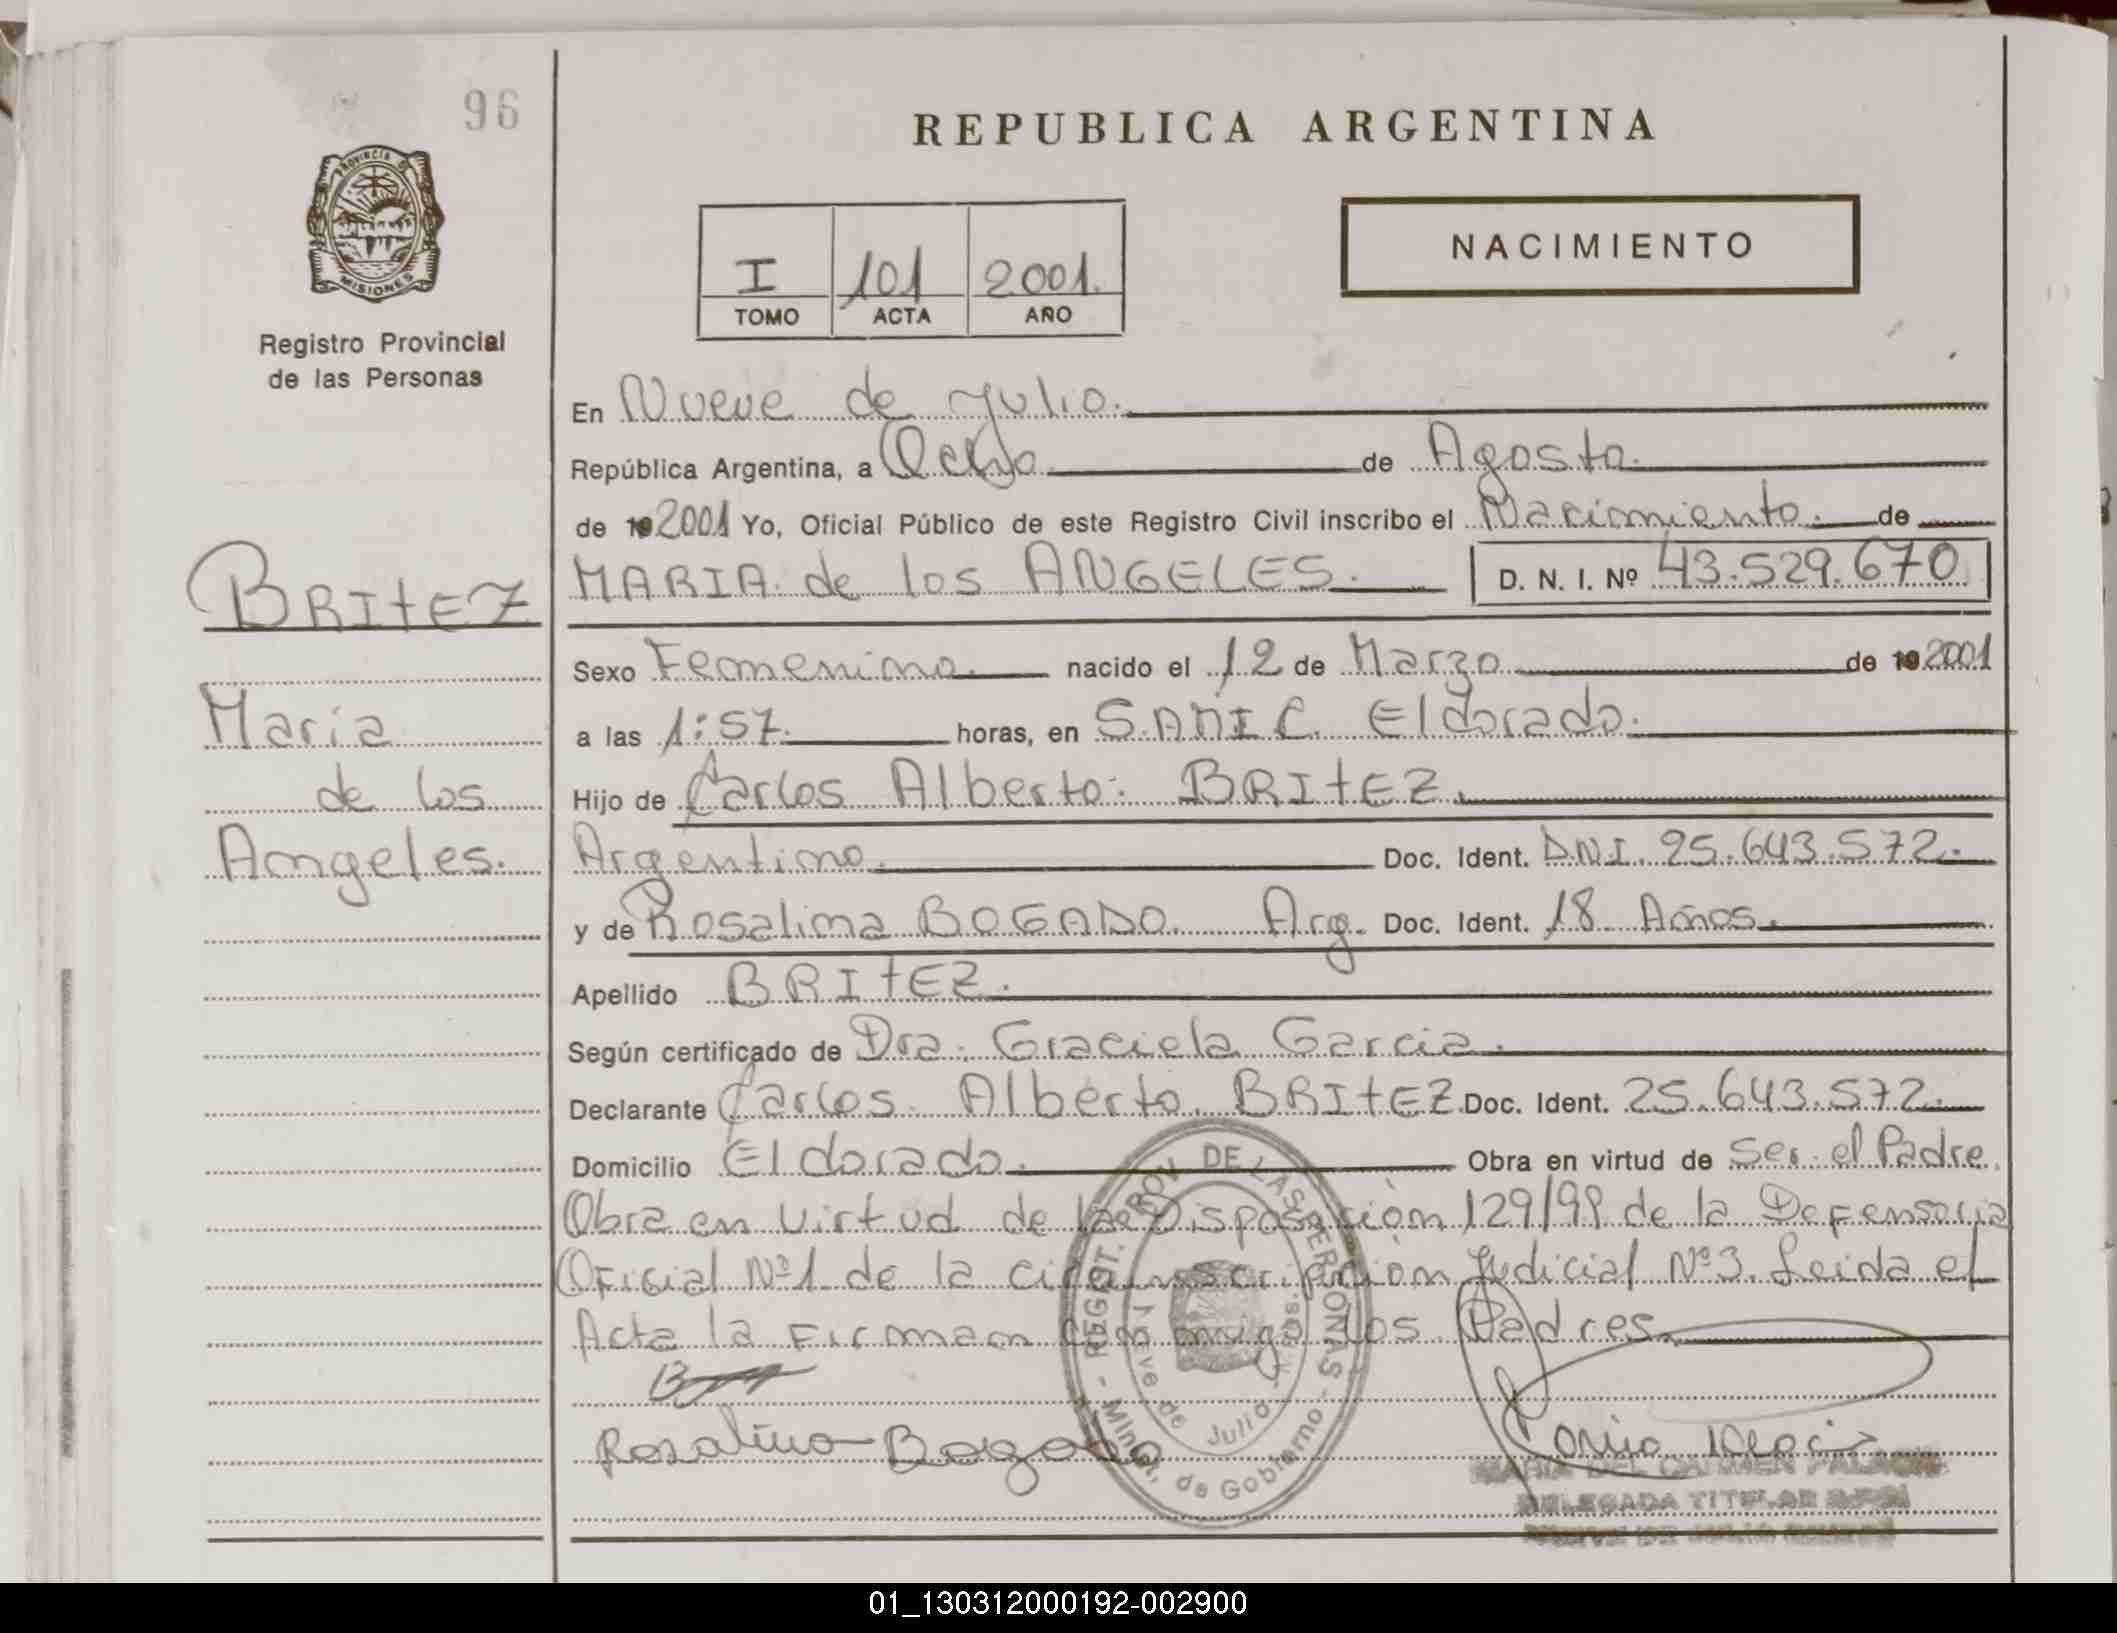 96
REPUBLICA ARGENTINA
PROVINCIA DE
MISIONES
Registro Provincial
de las Personas
I 101 2001.
TOMO ACTA AÑO
NACIMIENTO
En Nueve de Julio.
República Argentina, a Ocho de Agosto.
de 19 2001 Yo, Oficial Público de este Registro Civil inscribo el Nacimiento. de
MARIA de los ANGELES.
D. N. I. Nº 43.529.670
BRITEZ
Maria
de los
Angeles.
Sexo Femenino. nacido el 12 de Marzo de 19 2001
a las 1:57. horas, en S.AMIC. Eldorado.
Hijo de Carlos Alberto. BRITEZ.
Argentino. Doc. Ident. DNI. 25.643.572.
y de Rosalina BOGADO. Arg. Doc. Ident. 18 Años.
Apellido BRITEZ.
Según certificado de Dra. Graciela Garcia.
Declarante Carlos. Alberto. BRITEZ Doc. Ident. 25.643.572.
Domicilio Eldorado. Obra en virtud de Ser. el Padre.
Obra en Virtud de la Disposicion 129/99 de la Defensoria
Oficial Nº1 de la circunscripcion Judicial Nº3. Leida el
Acta la Firman conmigo los Padres.
Rosalina Bogado
REGIST. PROV. DE LAS PERSONAS - Minist. de Gobierno -
Nueve de Julio - Mnes.
MARIA DEL CARMEN PALACIO
DELEGADA TITULAR
NUEVE DE JULIO
01_130312000192-002900